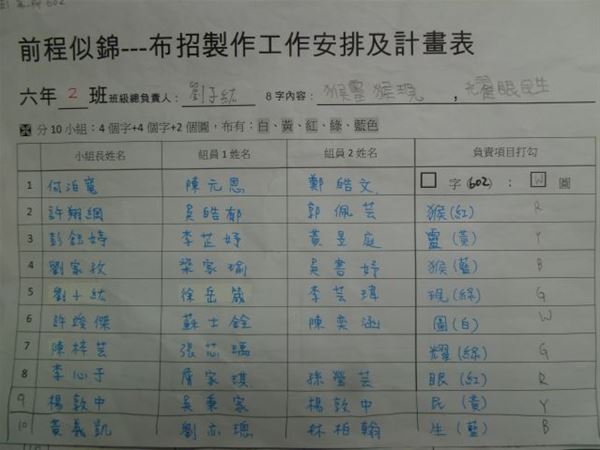 前程似錦---布招製作工作安排及計畫表
六年 2 班 班級總負責人：劉子紘 8字內容：猴靈猴現，耀眼民生
分10小組：4個字+4個字+2個圖，布有：白、黃、紅、綠、藍色
小組長姓名 組員1姓名 組員2姓名 負責項目打勾
1 何泊寬 陳元恩 鄭皓文 □ 字(602)： W 圖
2 許翔綱 吳皓郁 郭佩芸 猴(紅) R
3 彭鈺婷 李芷妤 黃昱庭 靈(黃) Y
4 劉家孜 梁家瑜 吳書妤 猴(藍) B
5 劉子紘 徐岳箴 李芸瑋 現(綠) G
6 許竣傑 蘇士銓 陳奕涵 圖(白) W
7 陳梓芸 張芯瑀 耀(綠) G
8 李心予 詹家琪 孫瑩芸 眼(紅) R
9 楊敦中 吳秉家 楊敦中 民(黃) Y
10 黃義凱 劉亦璁 林柏翰 生(藍) B